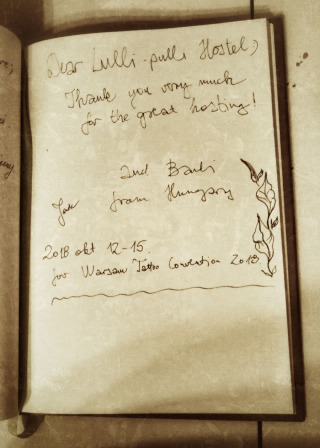 Dear Lulli-pulli Hostel,
Thank you very much
for the great hosting!
and Barbi
from Hungary
2018 okt 12-15.
for Warsaw Tattoo Convention 2018